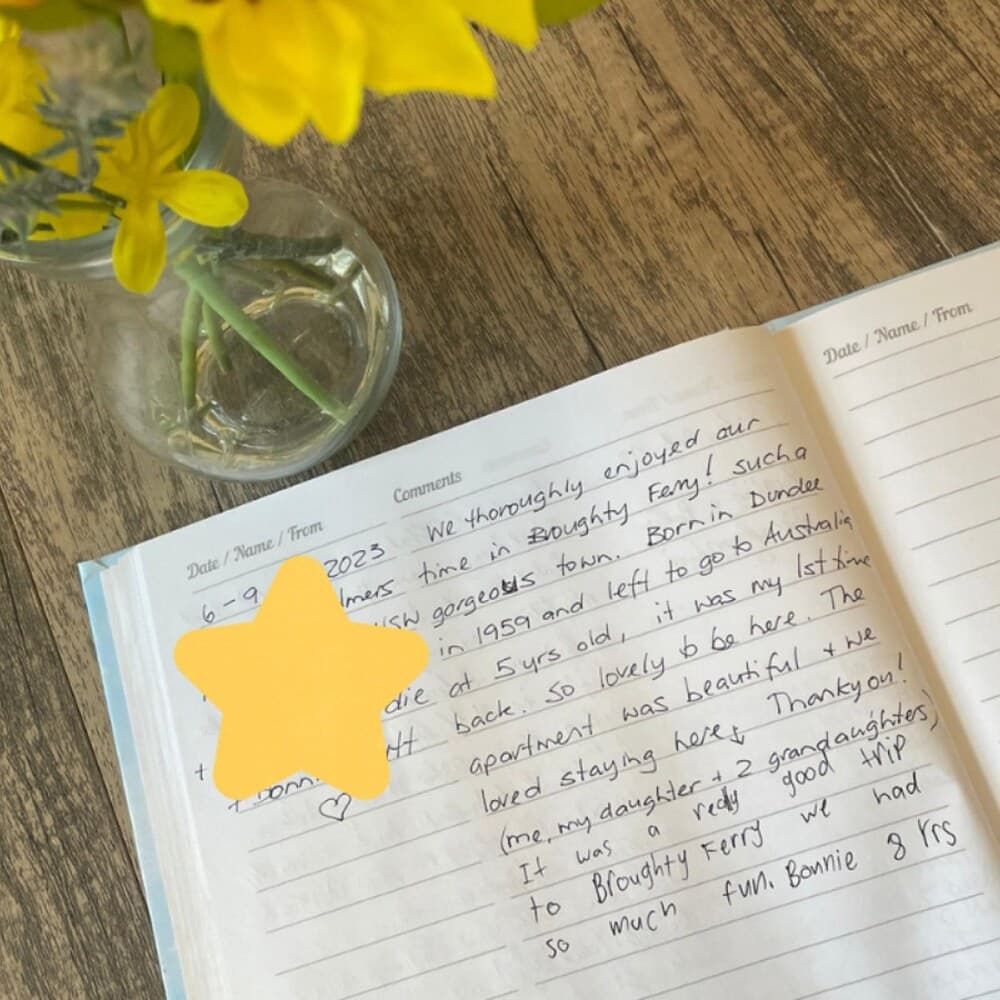 Date / Name / From
Comments
Date / Name / From
6-9 2023
We thoroughly enjoyed our
time in Broughty Ferry! such a
gorgeous town. Born in Dundee
in 1959 and left to go to Australia
at 5 yrs old, it was my 1st time
back. So lovely to be here. The
apartment was beautiful + we
loved staying here Thankyou!
(me, my daughter + 2 grandaughters)
It was a really good trip
to Broughty Ferry we had
so much fun. Bonnie 8 Yrs